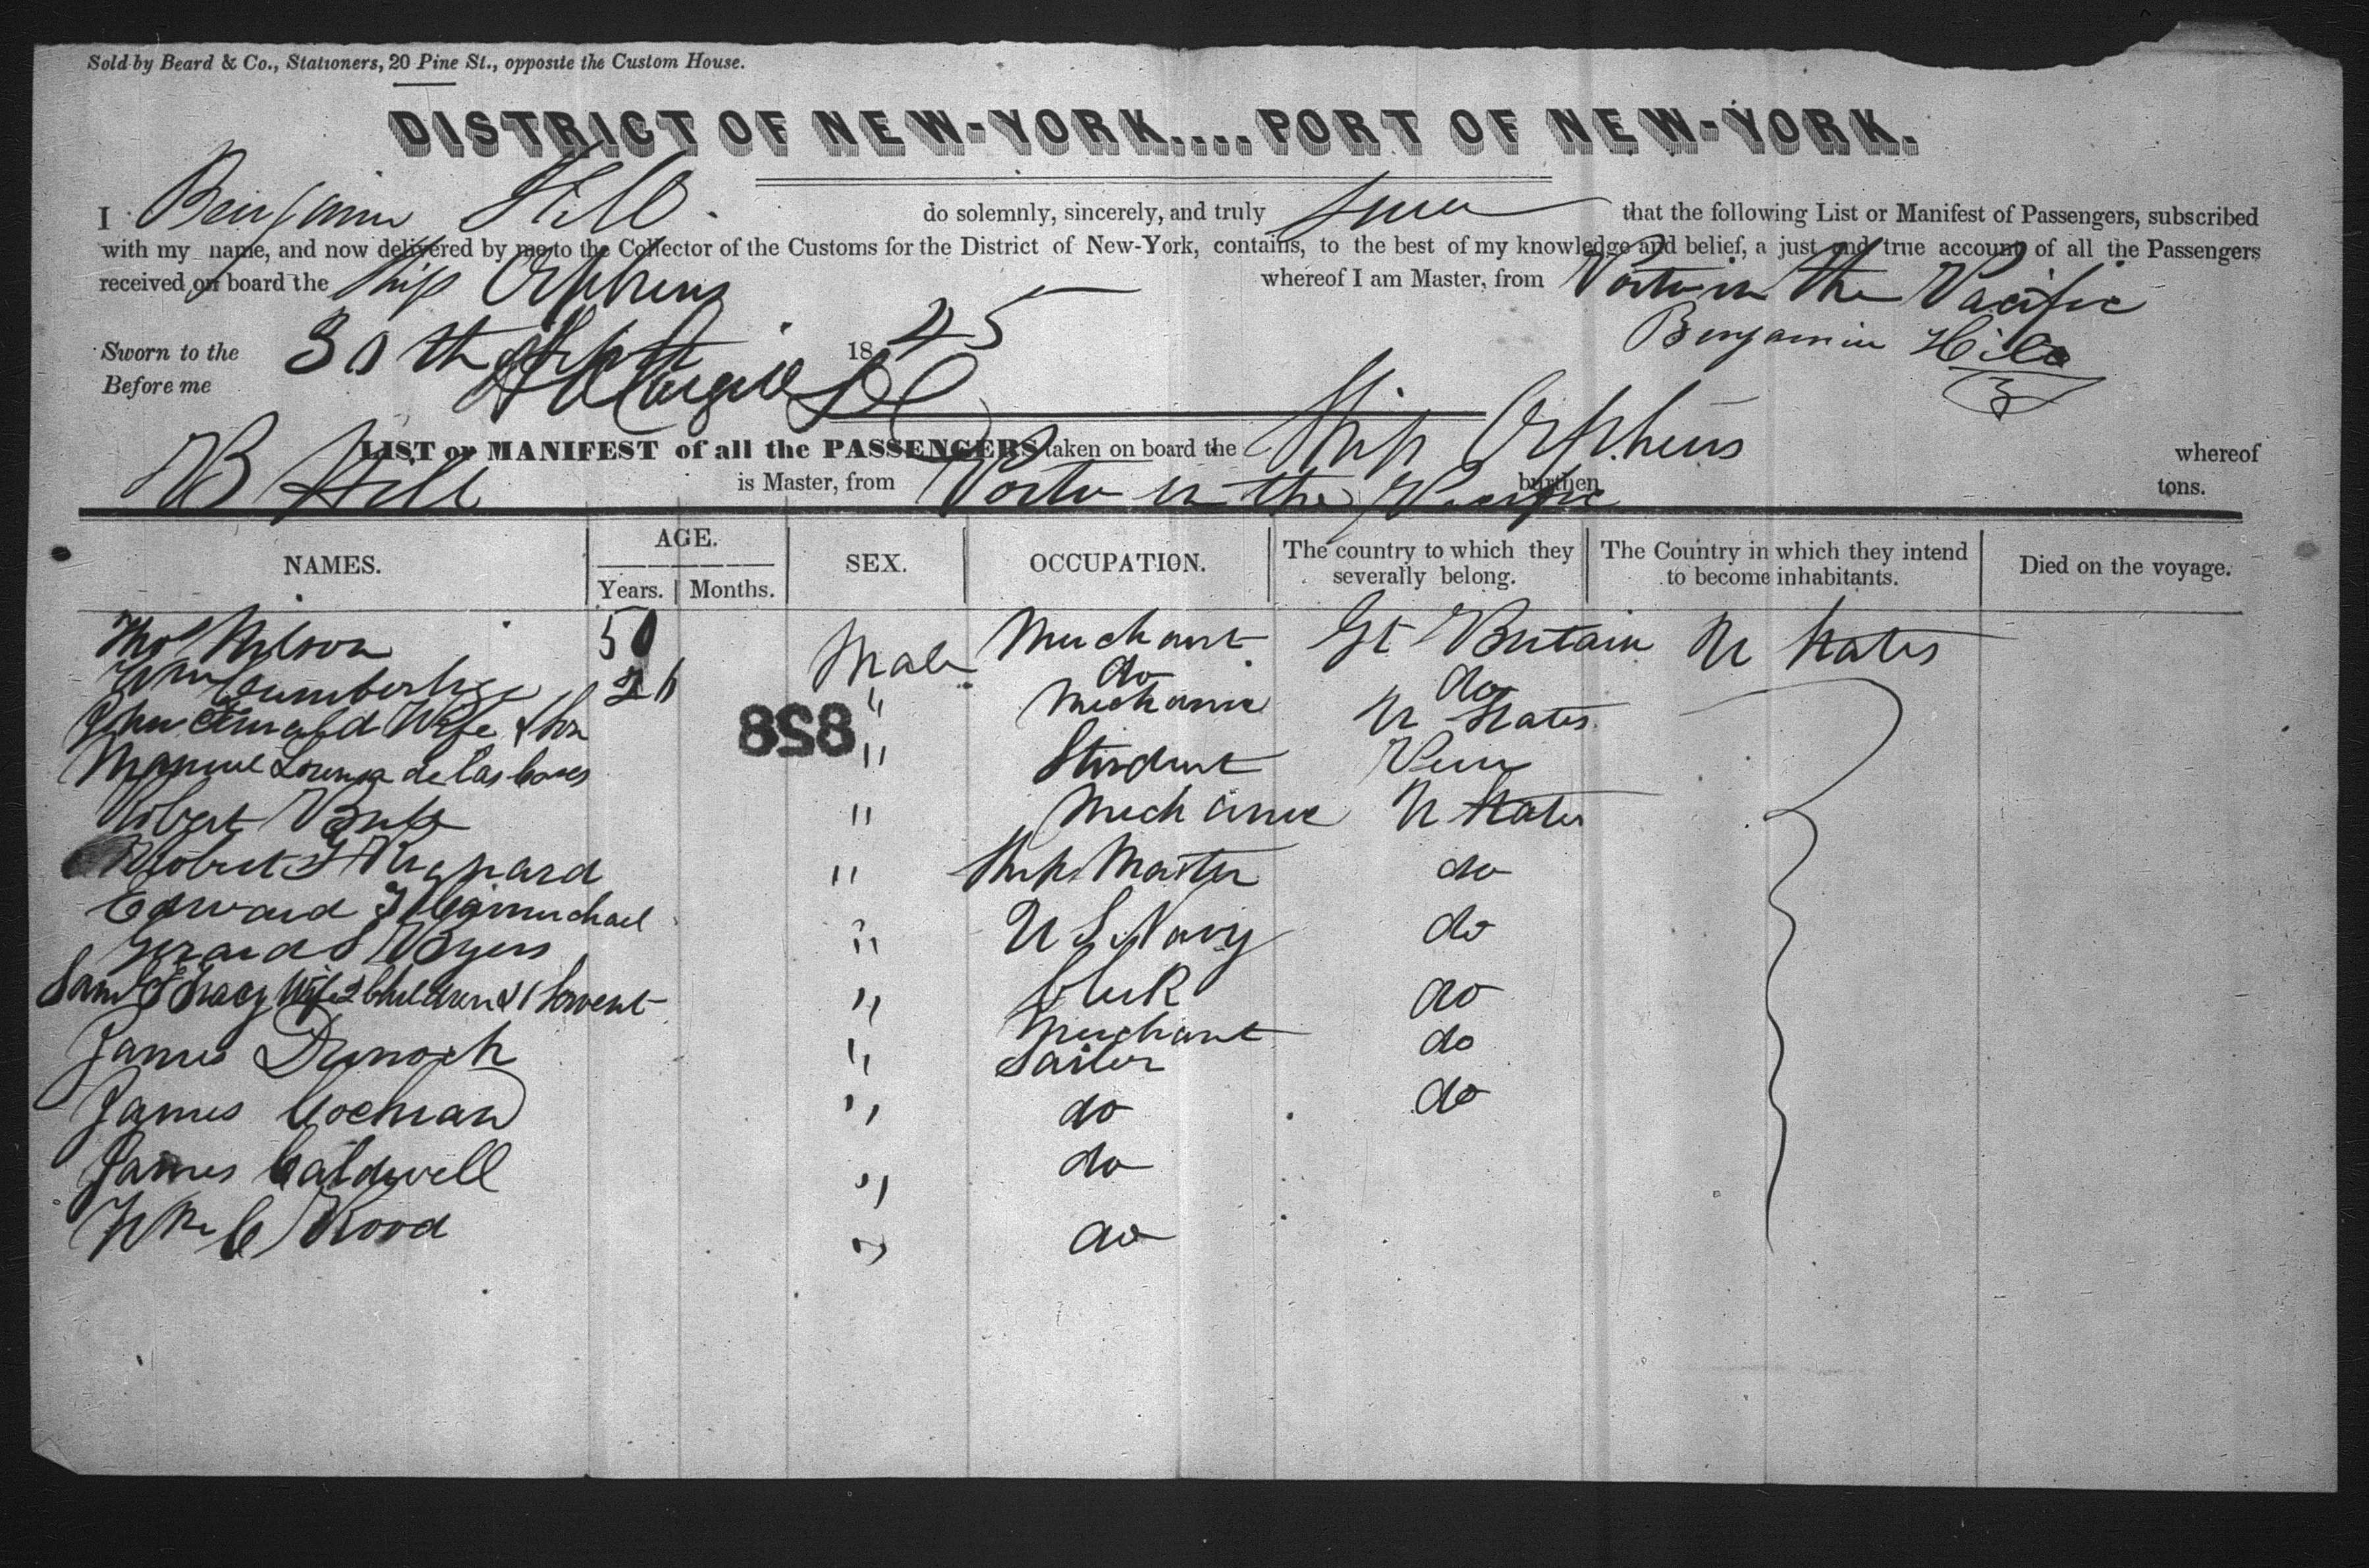 Sold by Beard & Co., Stationers, 20 Pine St., opposite the Custom House.
DISTRICT OF NEW-YORK....PORT OF NEW-YORK.
I Benjamin Hill do solemnly, sincerely, and truly swear that the following List or Manifest of Passengers, subscribed
with my name, and now delivered by me to the Collector of the Customs for the District of New-York, contains, to the best of my knowledge and belief, a just and true account of all the Passengers
received on board the Ship Orpheus whereof I am Master, from Ports in the Pacific
Sworn to the 30th Sept 1845 Benjamin Hill
Before me
LIST or MANIFEST of all the PASSENGERS taken on board the Ship Orpheus whereof
B Hill is Master, from Ports in the Pacific burthen tons.
NAMES. AGE. Years. Months. SEX. OCCUPATION. The country to which they severally belong. The Country in which they intend to become inhabitants. Died on the voyage.
Thos Wilson 50 Male Merchant Gt Britain U States
Wm 26 do do
John Wife & Son " Mechanic U States
858
de las " Student Peru
Robert " Mechanic U States
Robert " Ship Master do
Edward Carmichael
Gerard S Byers " U S Navy do
Saml Tracy Wife 2 Children & 1 Servent " Clerk do
Merchant do
James " Sailor
James Cochran " do do
James Caldwell " do
Wm C Wood " do